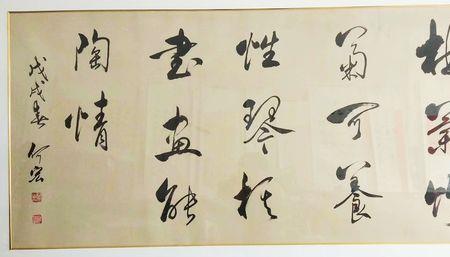 梅蘭竹
菊可養
性琴棋
書畫能
陶情
戊戌春 何宏